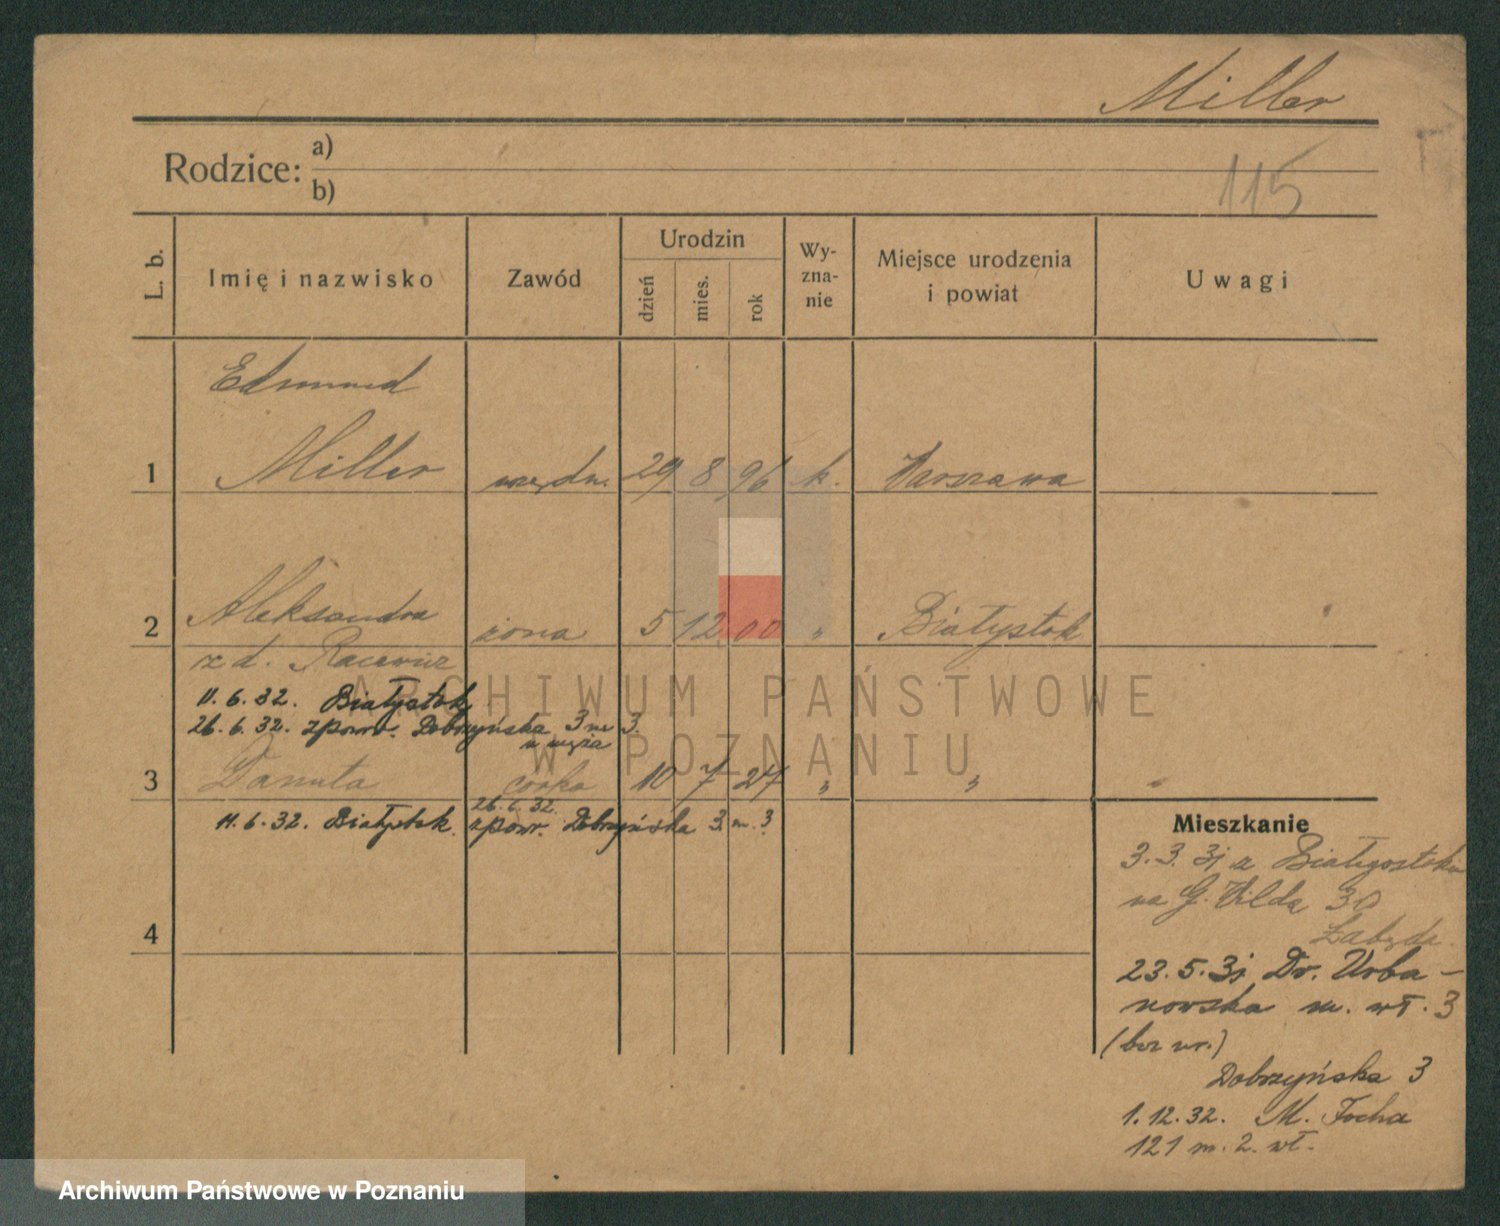 Miller
Rodzice: a)
b)
115
L. b. Imię i nazwisko Zawód Urodzin dzień mies. rok Wy-zna-nie Miejsce urodzenia i powiat Uwagi
Edmund
1 Miller urzędn. 29 8 96 k. Warszawa
2 Aleksandra żona 5 12 00 " Białystok
z d. Racewicz
11.6.32. Białystok
26.6.32. zpowr. Dobrzyńska 3 m 3.
u męża
3 Danuta córka 10 7 27 " "
26.6.32.
11.6.32. Białystok. zpowr. Dobrzyńska 3. m. 3
4
Mieszkanie
3.3.31 z Białegostoku
na G. Wilda 30
23.5.31 Dr. Urba-
nowska m. wł. 3
(bez nr.)
Dobrzyńska 3
1.12.32. M. Focha
121 m. 2. wł.
ARCHIWUM PAŃSTWOWE
W POZNANIU
Archiwum Państwowe w Poznaniu